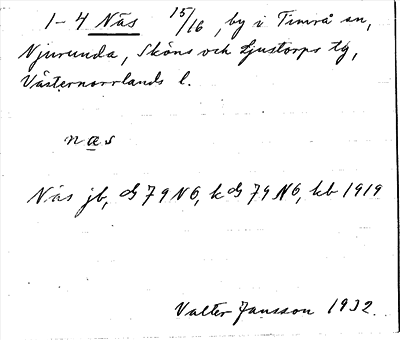 1-4 Näs 15/16, by i Timrå sn,
Njurunda, Sköns och Ljustorps tg,
Västernorrlands l.
næs
Näs jb, GS 79 NÖ, k GS 79 NÖ, kb 1919
Valter Jansson 1932.